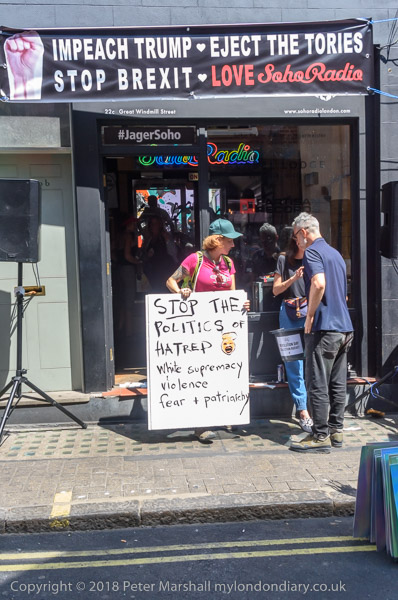 IMPEACH TRUMP ♥ EJECT THE TORIES
STOP BREXIT ♥ LOVE Soho Radio
22c Great Windmill Street
www.sohoradiolondon.com
#JagerSoho
Soho Radio
STOP THE
POLITICS OF
HATRED
White supremacy
violence
fear + patriarchy
Copyright © 2018 Peter Marshall mylondondiary.co.uk